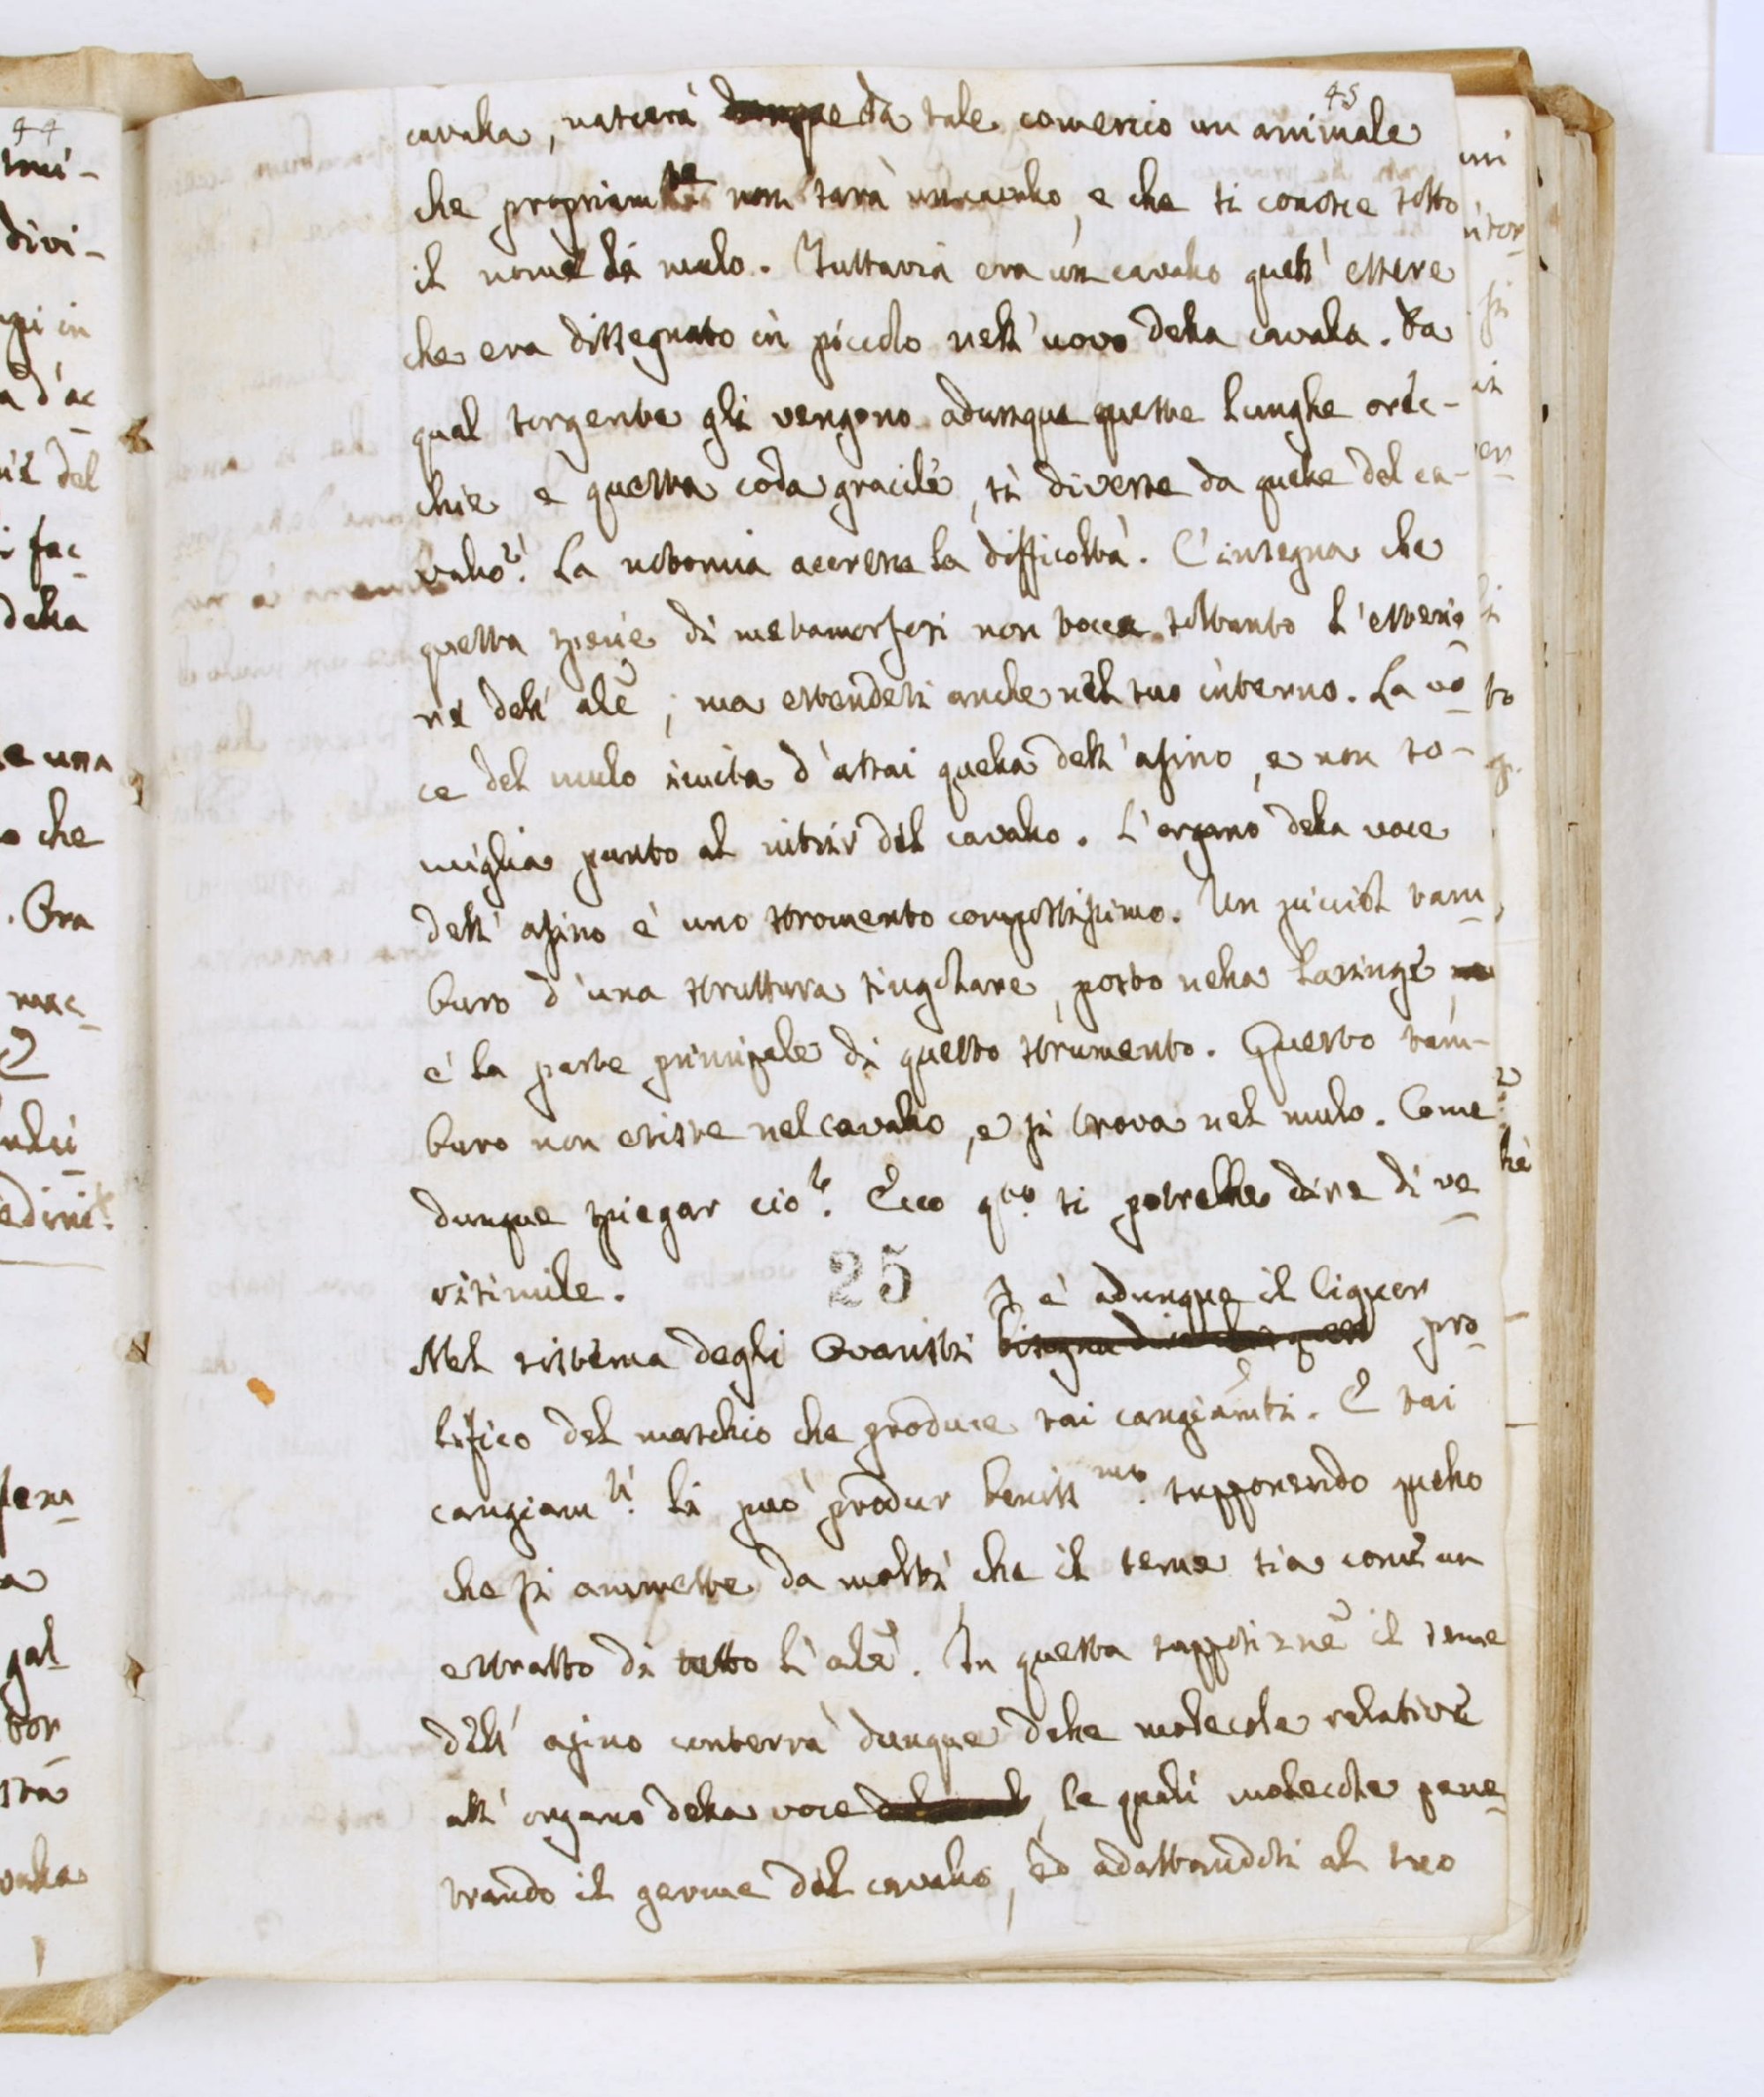 45
cavalla, nascerà dunque da tale comercio un animale
che propriamte non sarà un cavallo, e che si conosce sotto
il nome di mulo. Tuttavia era un cavallo quell' essere
che era dissegnato in piccolo nell' uovo della cavalla. Da
qual sorgente gli vengono adunque queste lunghe orec-
chie e questa coda gracile, sì diverse da quelle del ca-
vallo? La notomia accresce la difficoltà. C'insegna che
questa specie di metamorfosi non tocca soltanto l'esterio
re dell' ale, ma estendesi anche nel suo interno. La vo
ce del mulo imita d'assai quella dell' asino, e non so-
miglia punto al nitrir del cavallo. L'organo della voce
dell' asino è uno stromento compostissimo. Un picciol tam
buro d'una struttura singolare, posto nella laringe
è la parte principale di questo strumento. Questo tam-
buro non esiste nel cavallo, e si trova nel mulo. Come
dunque spiegar ciò? Ecco qto si potrebbe dire di ve
risimile.
25
I è adunque il liquor
Nel sistema degli Ovaristi bisogna dire che quest pro
lifico del maschio che produce tai cangiamti. E tai
cangiamti li può produr beniss mo. supponendo quello
che si ammette da molti che il seme sia come un
estratto di tutto l'ale. In questa supposizne il seme
dell' asino conterrà dunque delle molecole relative
all' organo della voce, le quali molecole pene
trando il germe del cavallo, ed adattandosi al suo
44
divi-
della
che
Ora